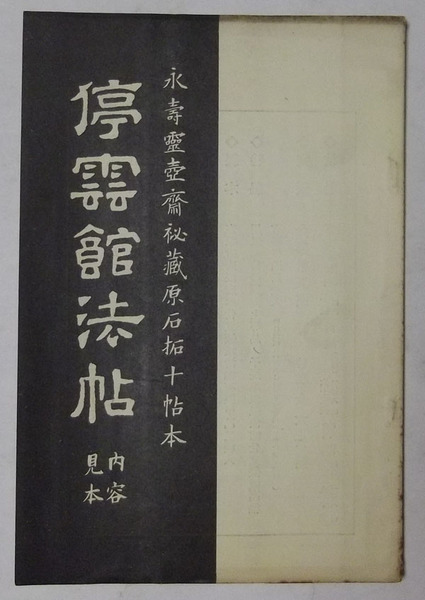 永壽靈壺齋祕藏原石拓十帖本
停雲館法帖
内容
見本